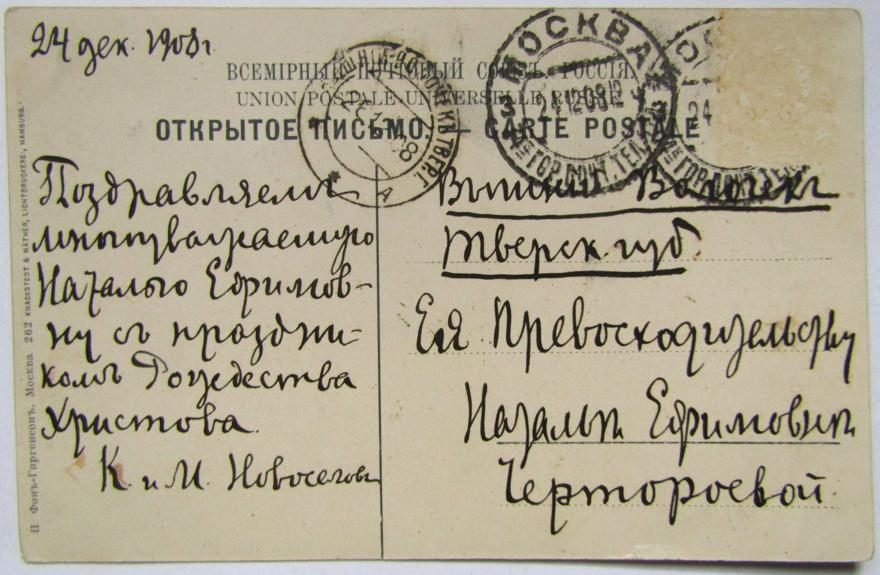 24 дек. 1908 г.
ВСЕМІРНЫЙ ПОЧТОВЫЙ СОЮЗЪ. РОССІЯ.
UNION POSTALE UNIVERSELLE RUSSIE
ОТКРЫТОЕ ПИСЬМО. — CARTE POSTALE
МОСКВА
24 12 08
3
ГОР. ПОЧТ. ТЕЛ.
24
ГОР. ПОЧТ. ТЕЛ.
Поздравляемъ
многоуважаемую
Наталью Ефимов-
ну съ праздни-
комъ Рождества
Христова.
К. и М. Новоселовы
Вышній Волочекъ
Тверск. губ.
Ея Превосходительству
Натальи Ефимовни
Чертороевой.
П. Фонъ-Гиргенсонъ. Москва 262 KNACKSTEDT & NÄTHER, LICHTDRUCKEREI, HAMBURG.